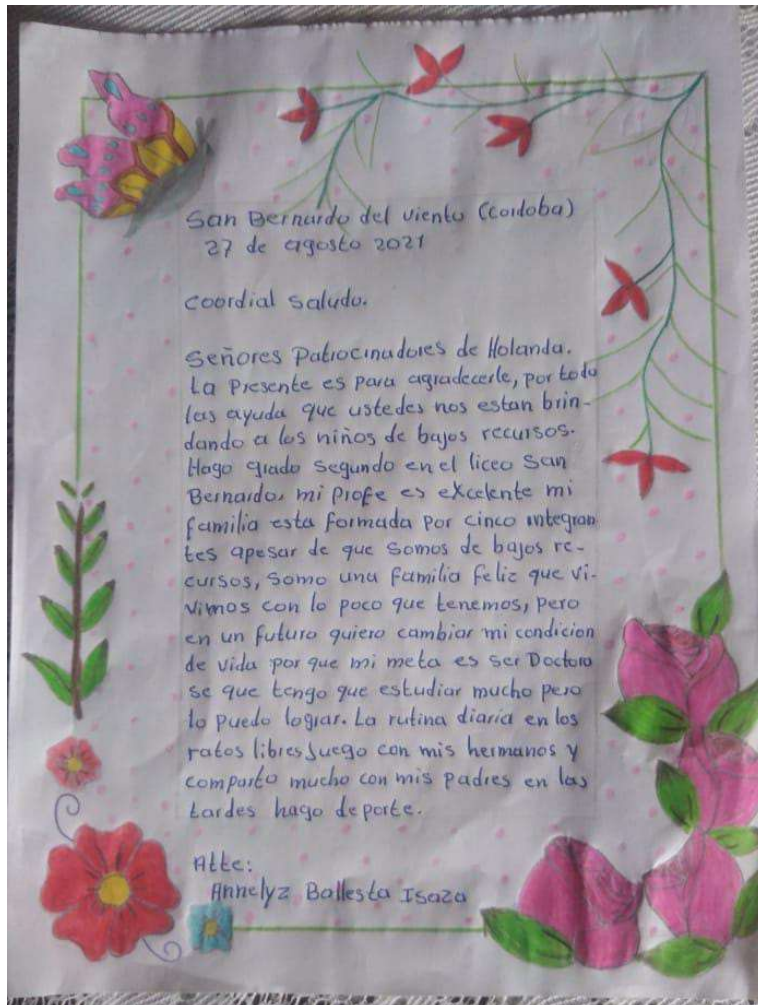 San Bernardo del viento (Cordoba)
27 de agosto 2021
Coordial saludo.
Señores Patrocinadores de Holanda.
La presente es para agradecerle, por todo
las ayuda que ustedes nos estan brin-
dando a los niños de bajos recursos.
Hago grado segundo en el liceo San
Bernardo, mi profe es excelente mi
familia esta formada por cinco integran
tes apesar de que somos de bajos re-
cursos, somo una familia feliz que vi-
vimos con lo poco que tenemos, pero
en un futuro quiero cambiar mi condicion
de vida por que mi meta es ser Doctora
se que tengo que estudiar mucho pero
lo puedo lograr. La rutina diaria en los
ratos libres juego con mis hermanos y
comparto mucho con mis padres en las
tardes hago deporte.
Atte:
Annelyz Ballesta Isaza